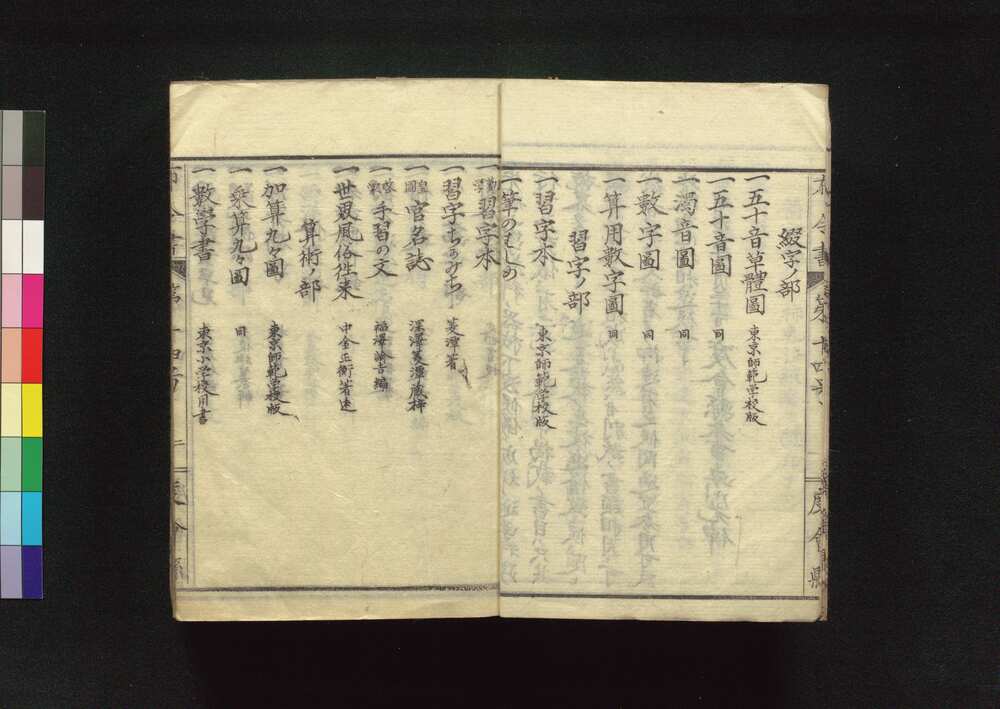 綴字ノ部
一五十音草體圖 東京師範学校版
一五十音圖 同
一濁音圖 同
一數字圖 同
一算用数字圖 同
習字ノ部
一習字本 東京師範学校版
一筆のはしめ
一習字本
一習字ちかみち 菱潭著
一皇國官名誌 深澤菱潭蔵梓
一啓蒙手習の文 福澤諭吉編
一世界風俗往来 中金正衡著述
算術ノ部
一加算九々圖 東京師範学校版
一乘算九々圖 同
一數学書 東京小学校用書
度會縣